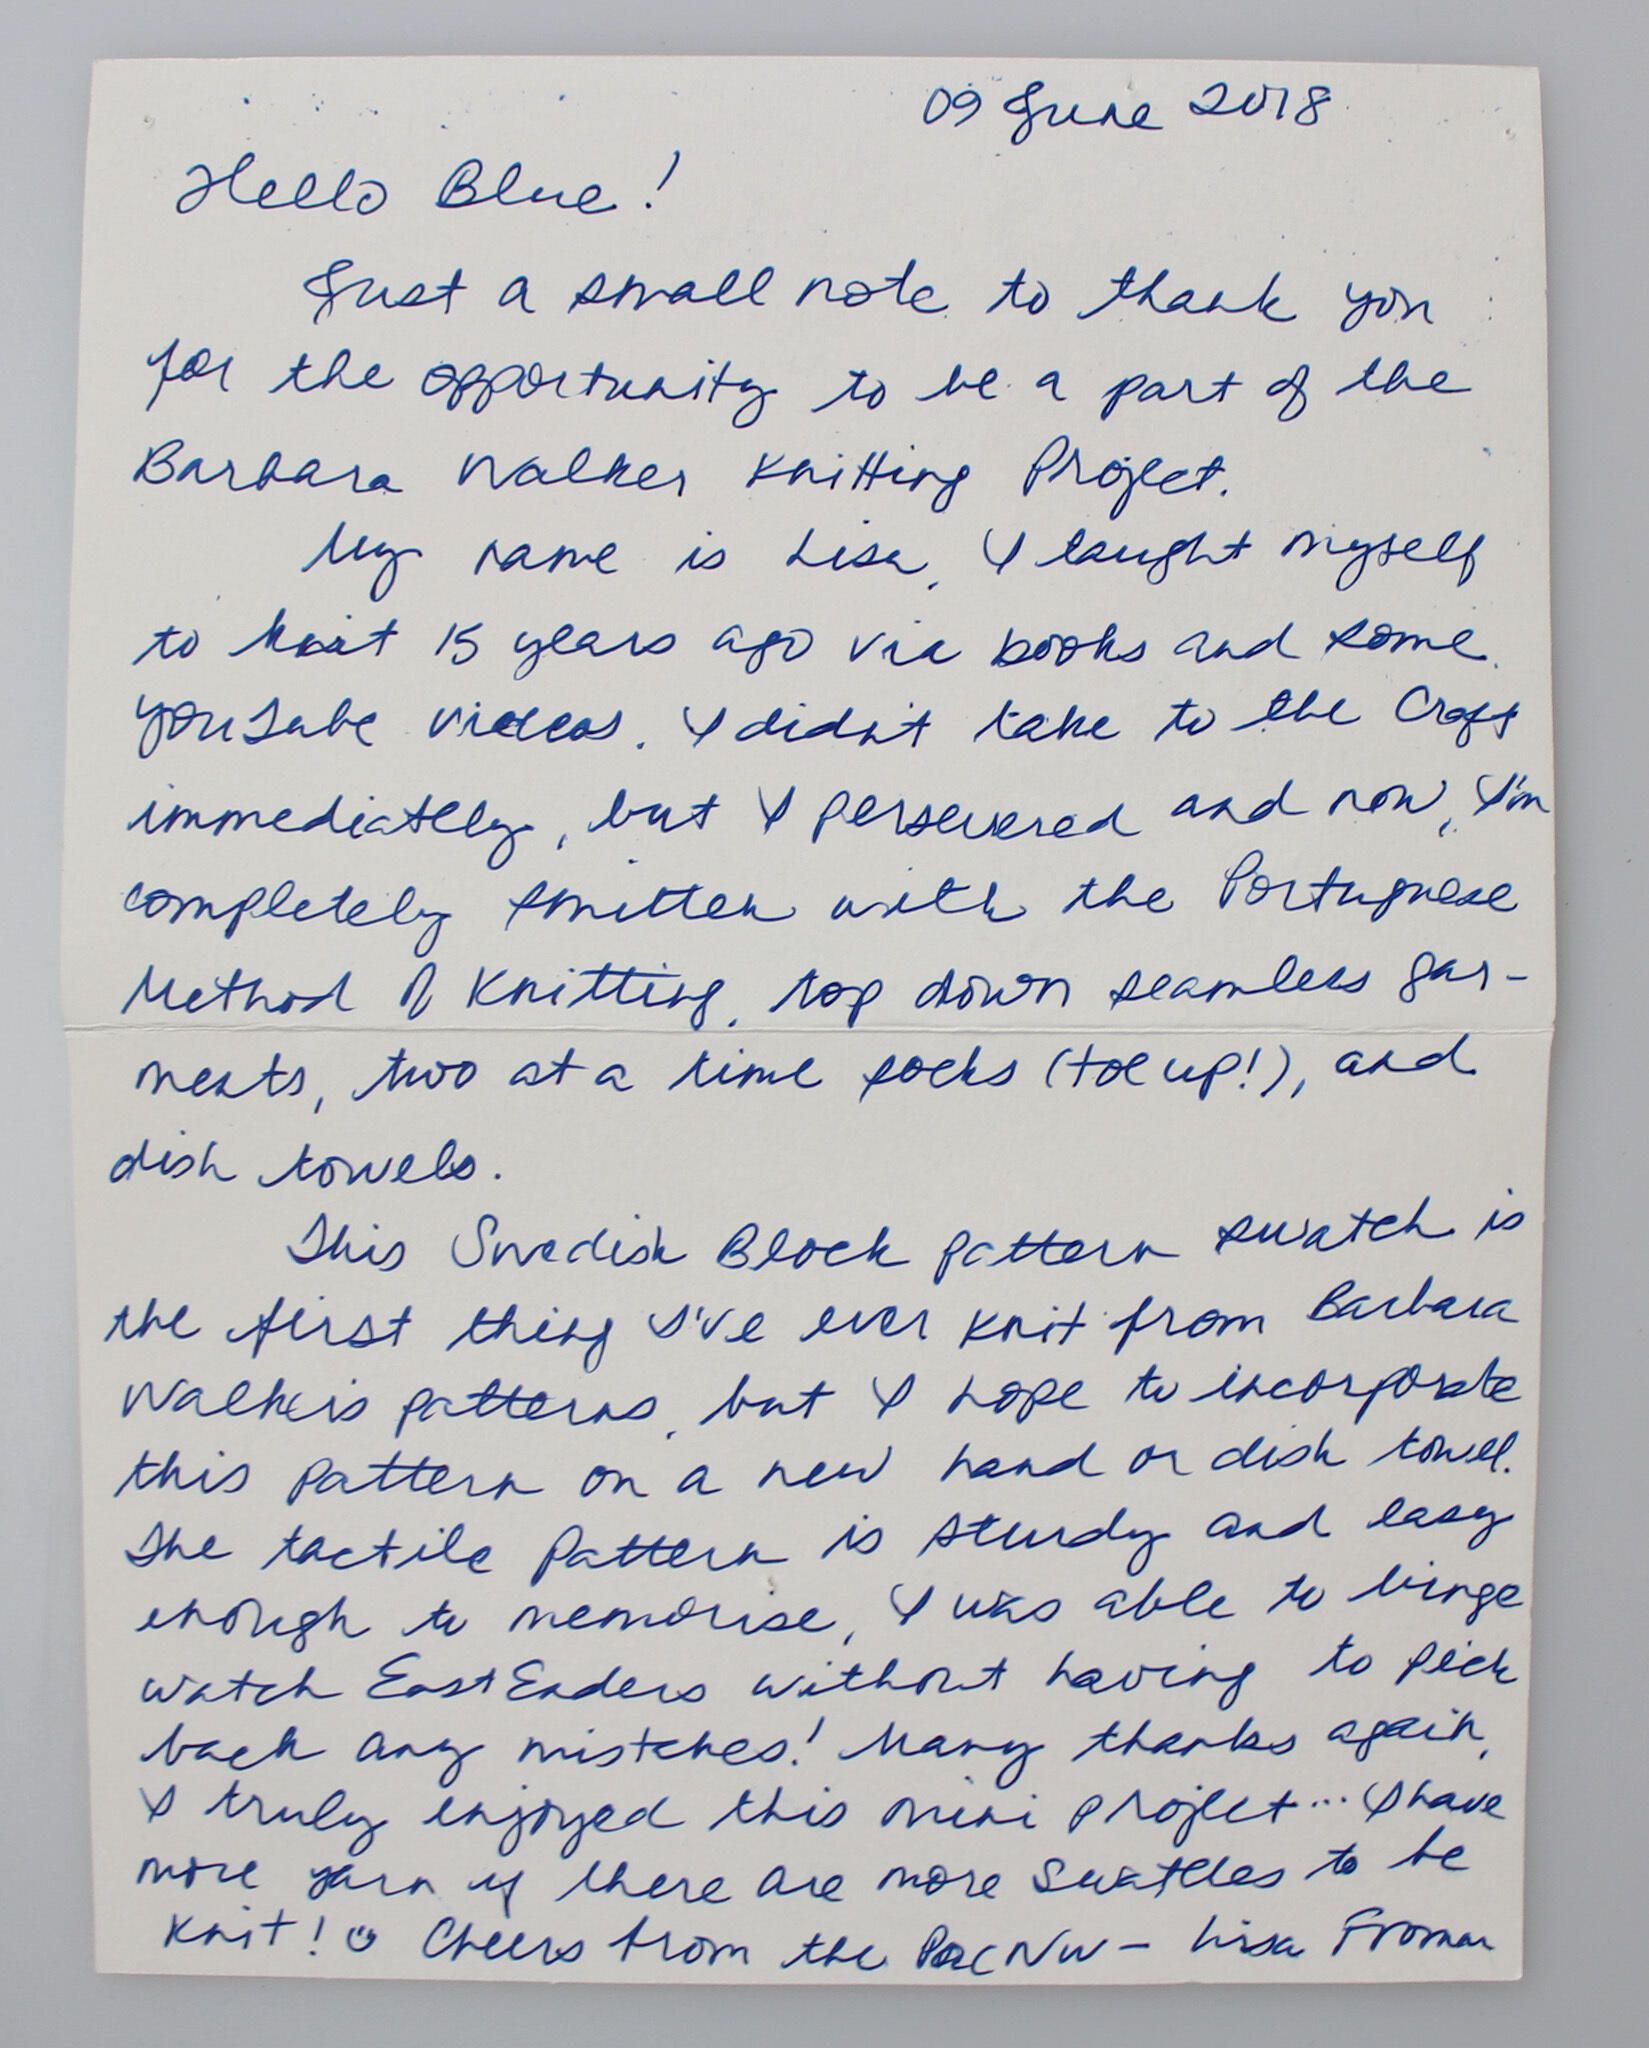 09 June 2018
Hello Blue!
Just a small note to thank you
for the opportunity to be a part of the
Barbara Walker Knitting Project.
My name is Lisa, I taught myself
to knit 15 years ago via books and some
YouTube videos. I didn't take to the Craft
immediately, but I persevered and now, I'm
completely smitten with the Portuguese
Method of Knitting, top down seamless gar-
ments, two at a time socks (toe up!), and
dish towels.
This Swedish Block pattern swatch is
the first thing I've ever knit from Barbara
Walker's patterns, but I hope to incorporate
this pattern on a new hand or dish towel.
The tactile pattern is sturdy and easy
enough to memorise, I was able to binge
watch EastEnders without having to pick
back any mistakes! Many thanks again,
I truly enjoyed this mini project... I have
more yarn if there are more swatches to be
knit! ☺ Cheers from the PacNW - Lisa Froman